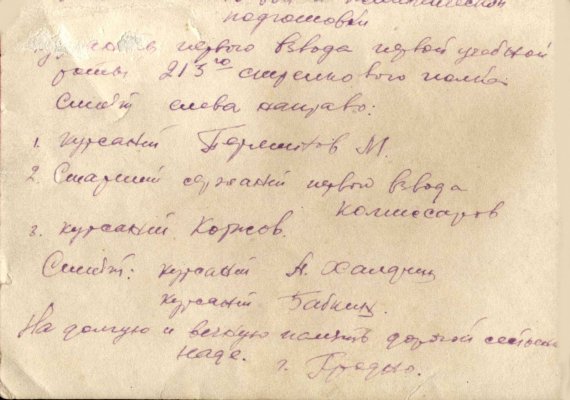 подготовки
первого взвода первой учебной
роты 213го стрелкового полка
Стоят слева направо:
1. курсант М.
2. Старший сержант первого взвода
Комиссаров
3. курсант Коржов.
Сидят: курсант А.
курсант Бабкин.
На долгую и вечную память дорогой сестренке
Наде.
г. Гродно.